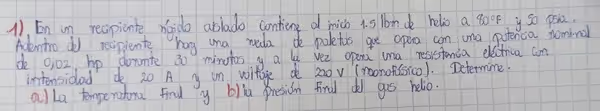 1). En un recipiente rígido aislado contiene al inicio 1.5 lbm de helio a 90°F y 50 psia.
Adentro del recipiente hay una rueda de paletas que opera con una potencia nominal
de 0,02 hp durante 30 minutos y a la vez opera una resistencia eléctrica con
intensidad de 20 A y un voltaje de 200 V (monofásico). Determine.
a) La temperatura final y b) la presión final del gas helio.